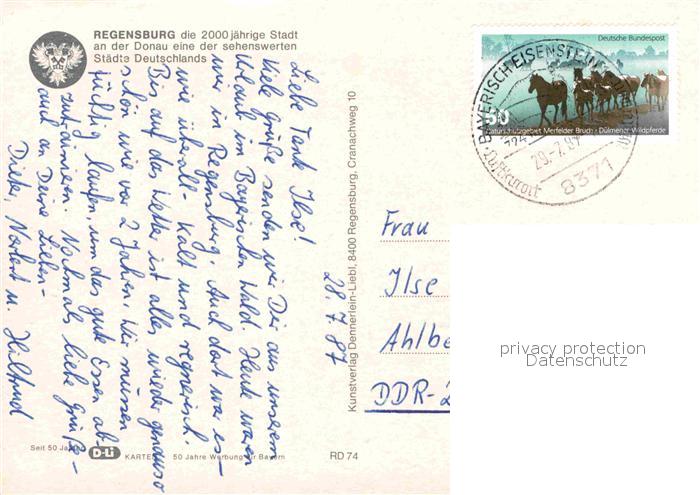 REGENSBURG die 2000jährige Stadt
an der Donau eine der sehenswerten
Städte Deutschlands
Liebe Tante Ilse!
Viele Grüße senden wir Dir aus unserem
Urlaub im Bayrischen Wald. Heute waren
wir in Regensburg. Auch dort war es –
wie überall – kalt und regnerisch.
Bis auf das Wetter ist alles wieder genauso
schön wie vor 2 Jahren. Wir müssen
tüchtig laufen, um das gute Essen ab-
zutrainieren. Nochmals liebe Grüße –
auch an Deine Lieben –
Dieter, Norbert u. Hiltrud
28.7.87
Seit 50 Jahren
D-Li
KARTEN
50 Jahre Werbung für Bayern
RD 74
Kunstverlag Dennerlein-Liebl, 8400 Regensburg, Cranachweg 10
Deutsche Bundespost
50
Naturschutzgebiet Merfelder Bruch · Dülmener Wildpferde
BAYERISCH EISENSTEIN
29.7.87
8371
Luftkurort
Frau
Ilse
Ahlbe
DDR-2
privacy protection
Datenschutz